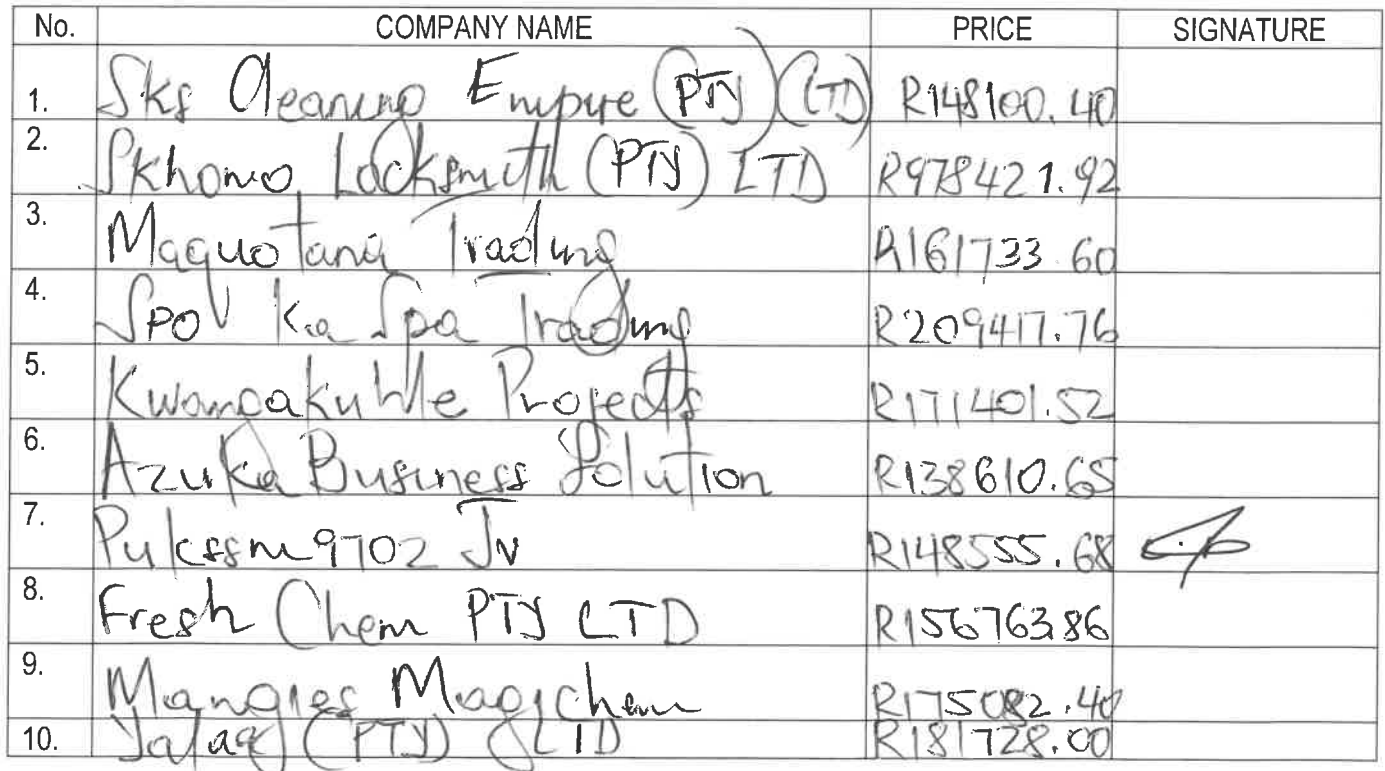 No. COMPANY NAME PRICE SIGNATURE
1. Sks Cleaning Empire (PTY) (LTD) R148100.40
2. Skhomo Locksmith (PTY) LTD R978421.92
3. Maquotana Trading R161733.60
4. Spov Ka Spa Trading R209417.76
5. Kwangakuhle Projects R171401.52
6. Azuka Business Solution R138610.65
7. Pukssm9702 JV R148555.68
8. Fresh Chem PTY LTD R156763.86
9. Mangies Magichem R175082.40
10. (PTY) LTD R181728.00